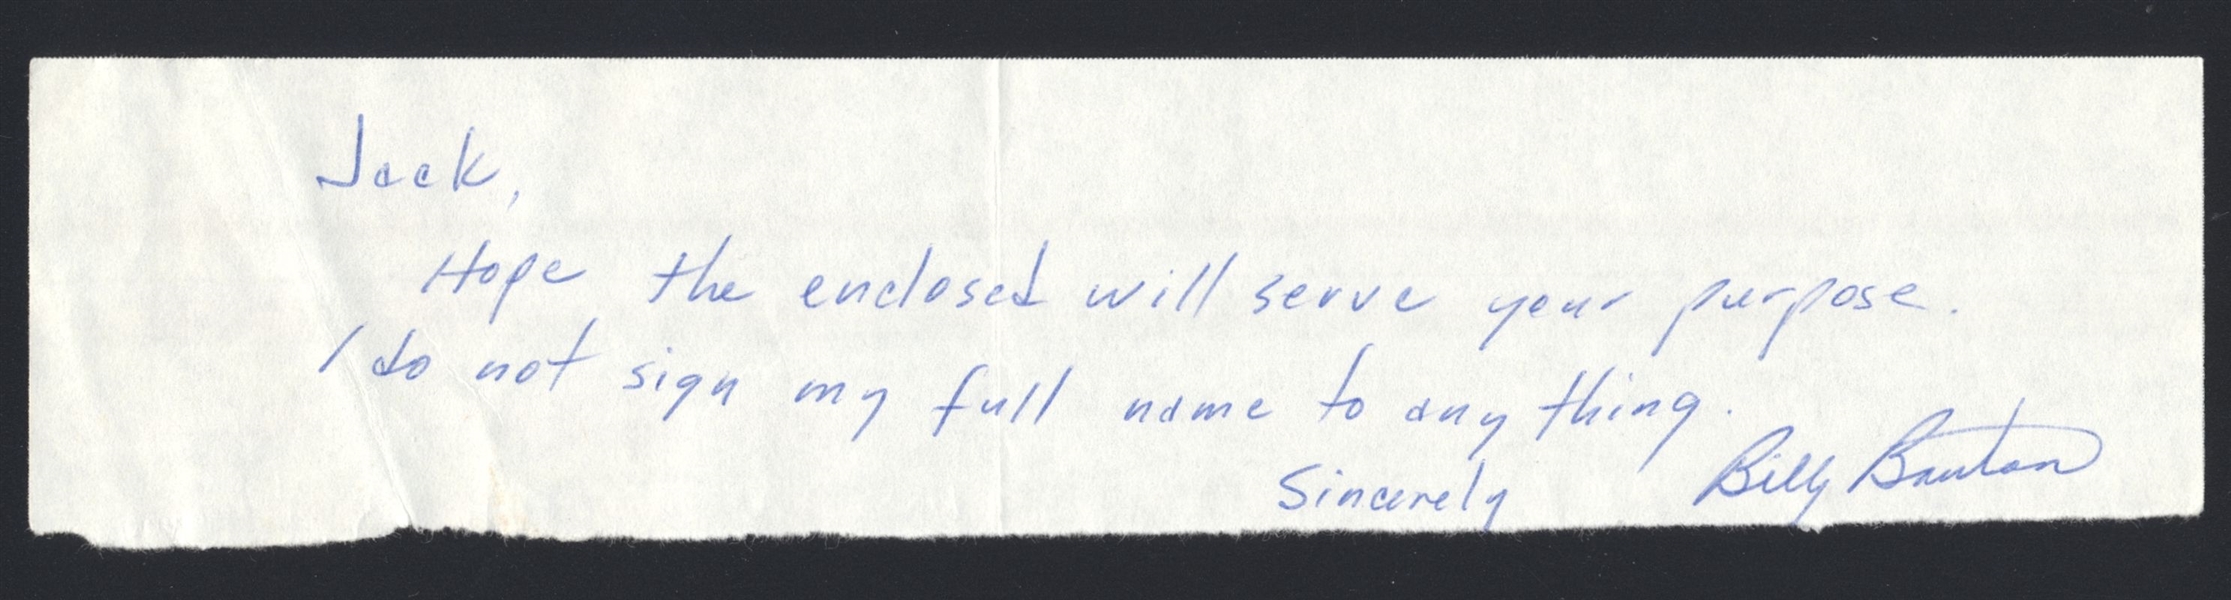 Jack,
Hope the enclosed will serve your purpose.
I do not sign my full name to any thing.
Sincerely Billy Bruton